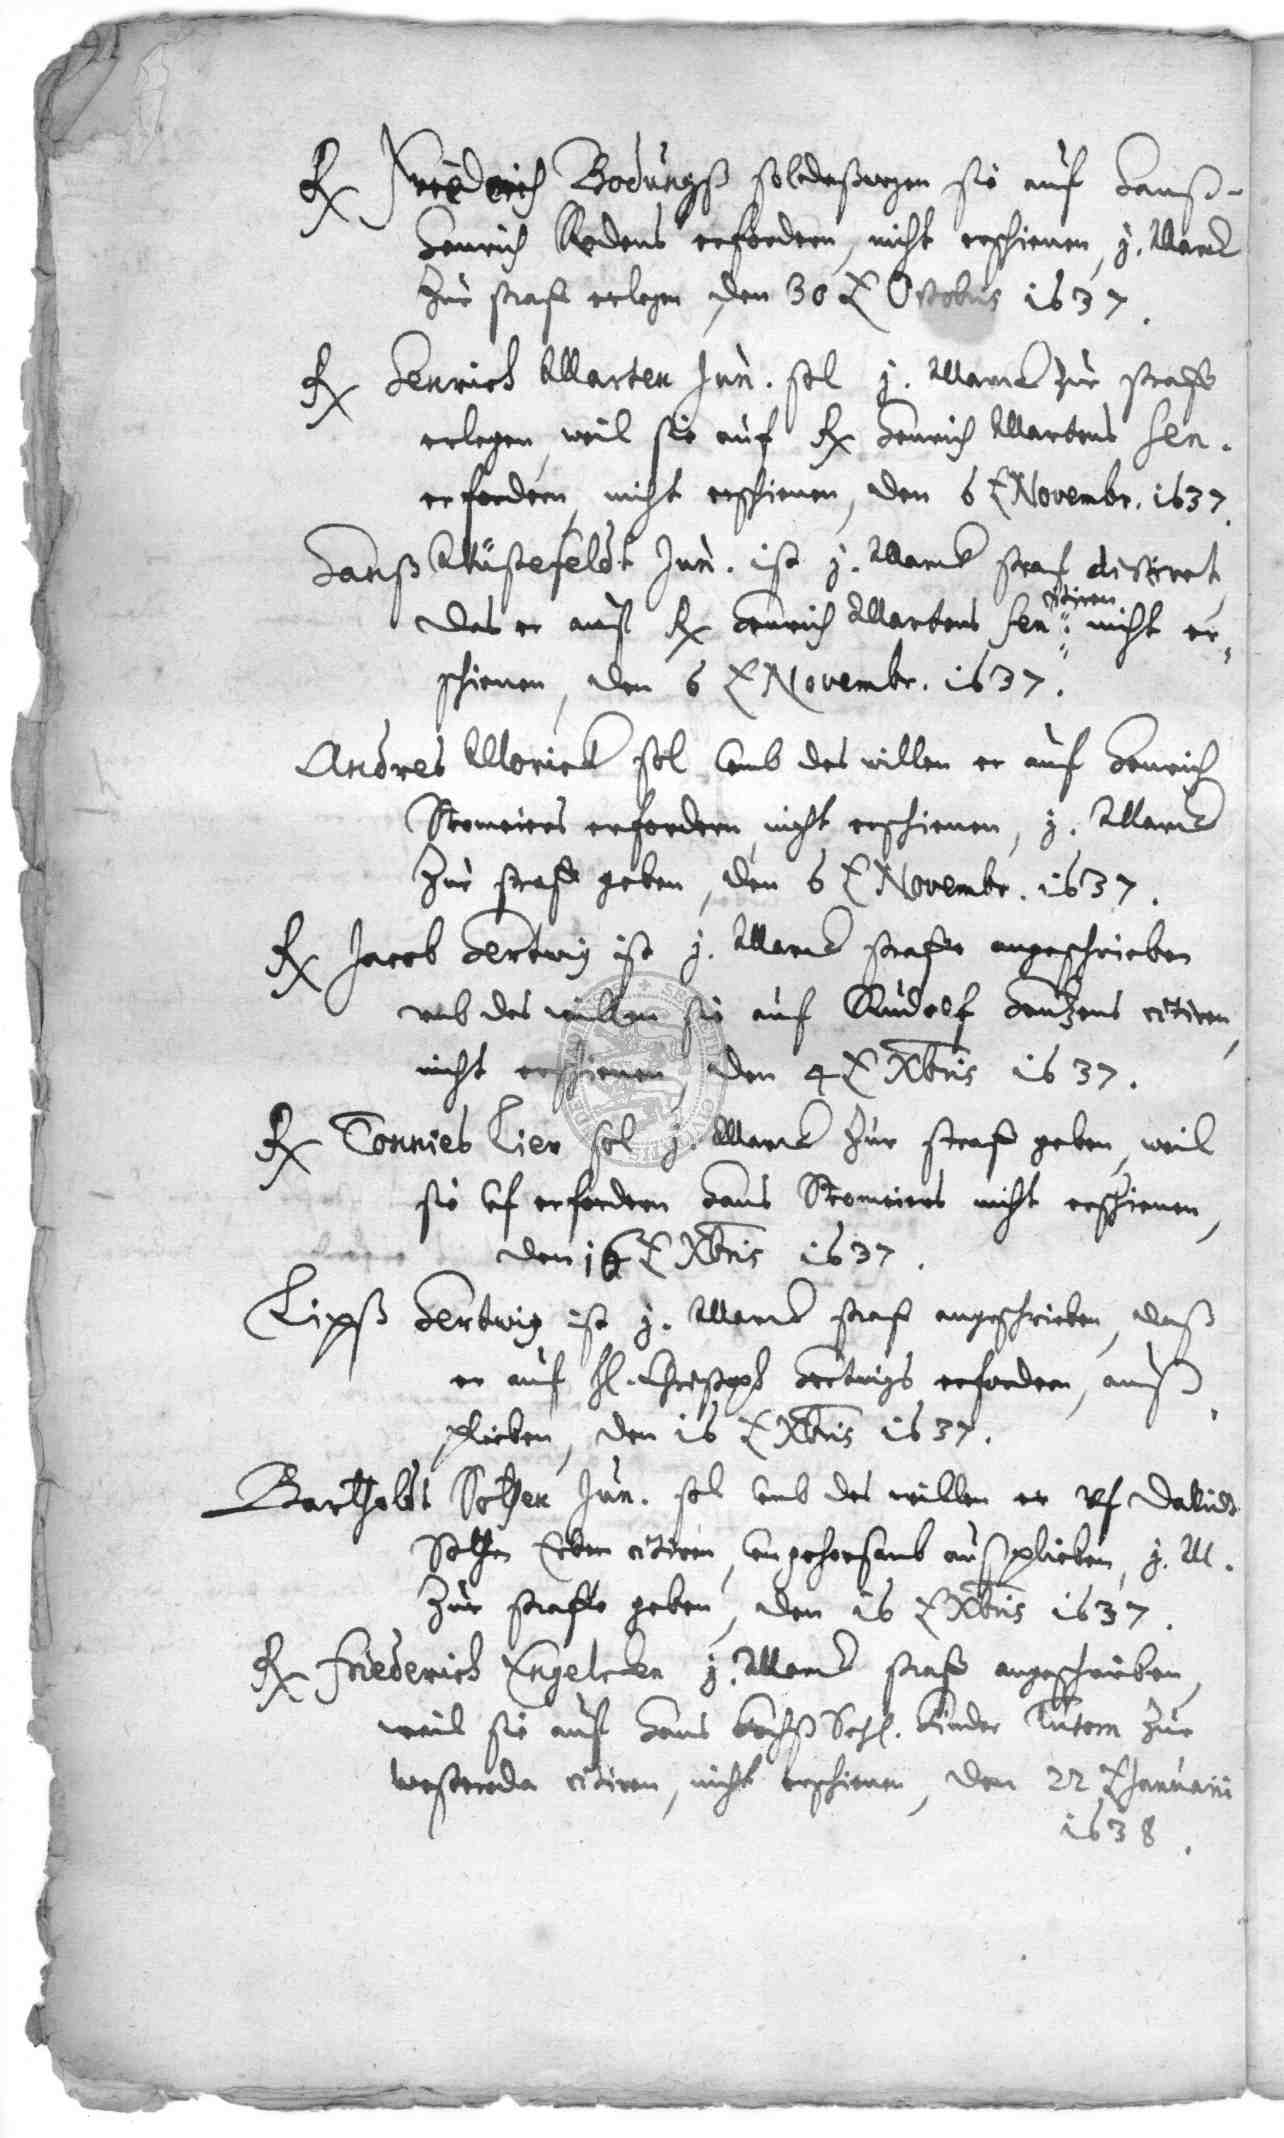 Rx Friederich Bodungß sol deßwegen sie auf Hanß-
Henrich Rodens erfordern, nicht erschienen, j. Marck
zur straf erlegen, den 30 Octobris 1637.
Rx Henrich Marten Jun. sol j. Marck zur strafe
erlegen, weil sie auf Rx Henrich Martens Sen.
erfordern, nicht erschienen, den 6 Novembr. 1637.
Hanß Wüstefeldt Jun. ist j. Marck straf dictiret,
das er auf Rx Henrich Martens Sen. citiren nicht er-
schienen, den 6 Novembr. 1637.
Andres Morick sol umb des willen er auf Henrich
Stromeiers erfordern nicht erschienen, j. Marck
zur strafe geben, den 6 Novembr. 1637.
Rx Jacob Hertwig ist j. Marck strafe angeschrieben
umb des willen sie auf Rudolf citiren,
nicht erschienen, den 4 Xbris 1637.
Rx Tonnies Lier sol j. Marck zur straf geben, weil
sie uf erfordern Hans Stromeiers nicht erschienen,
den 16 Xbris 1637.
Lipß Hertwig ist j. Marck straf angeschrieben, daß
er auf Christoph Hertwigs erfordern, auß
plieben, den 16 Xbris 1637.
Bartholdt Sothen Jun. sol umb des willen er uf Davidt
Sothen Erben citiren, ungehorsamb ausplieben, j. M.
zur strafe geben, den 16 Xbris 1637.
Rx Friederich Engelcken j. Marck straf angeschrieben,
weil sie auf Hans Sehl. kinder Tutorn zur
Westeroda citiren, nicht erschienen, den 22 Januarii
1638.